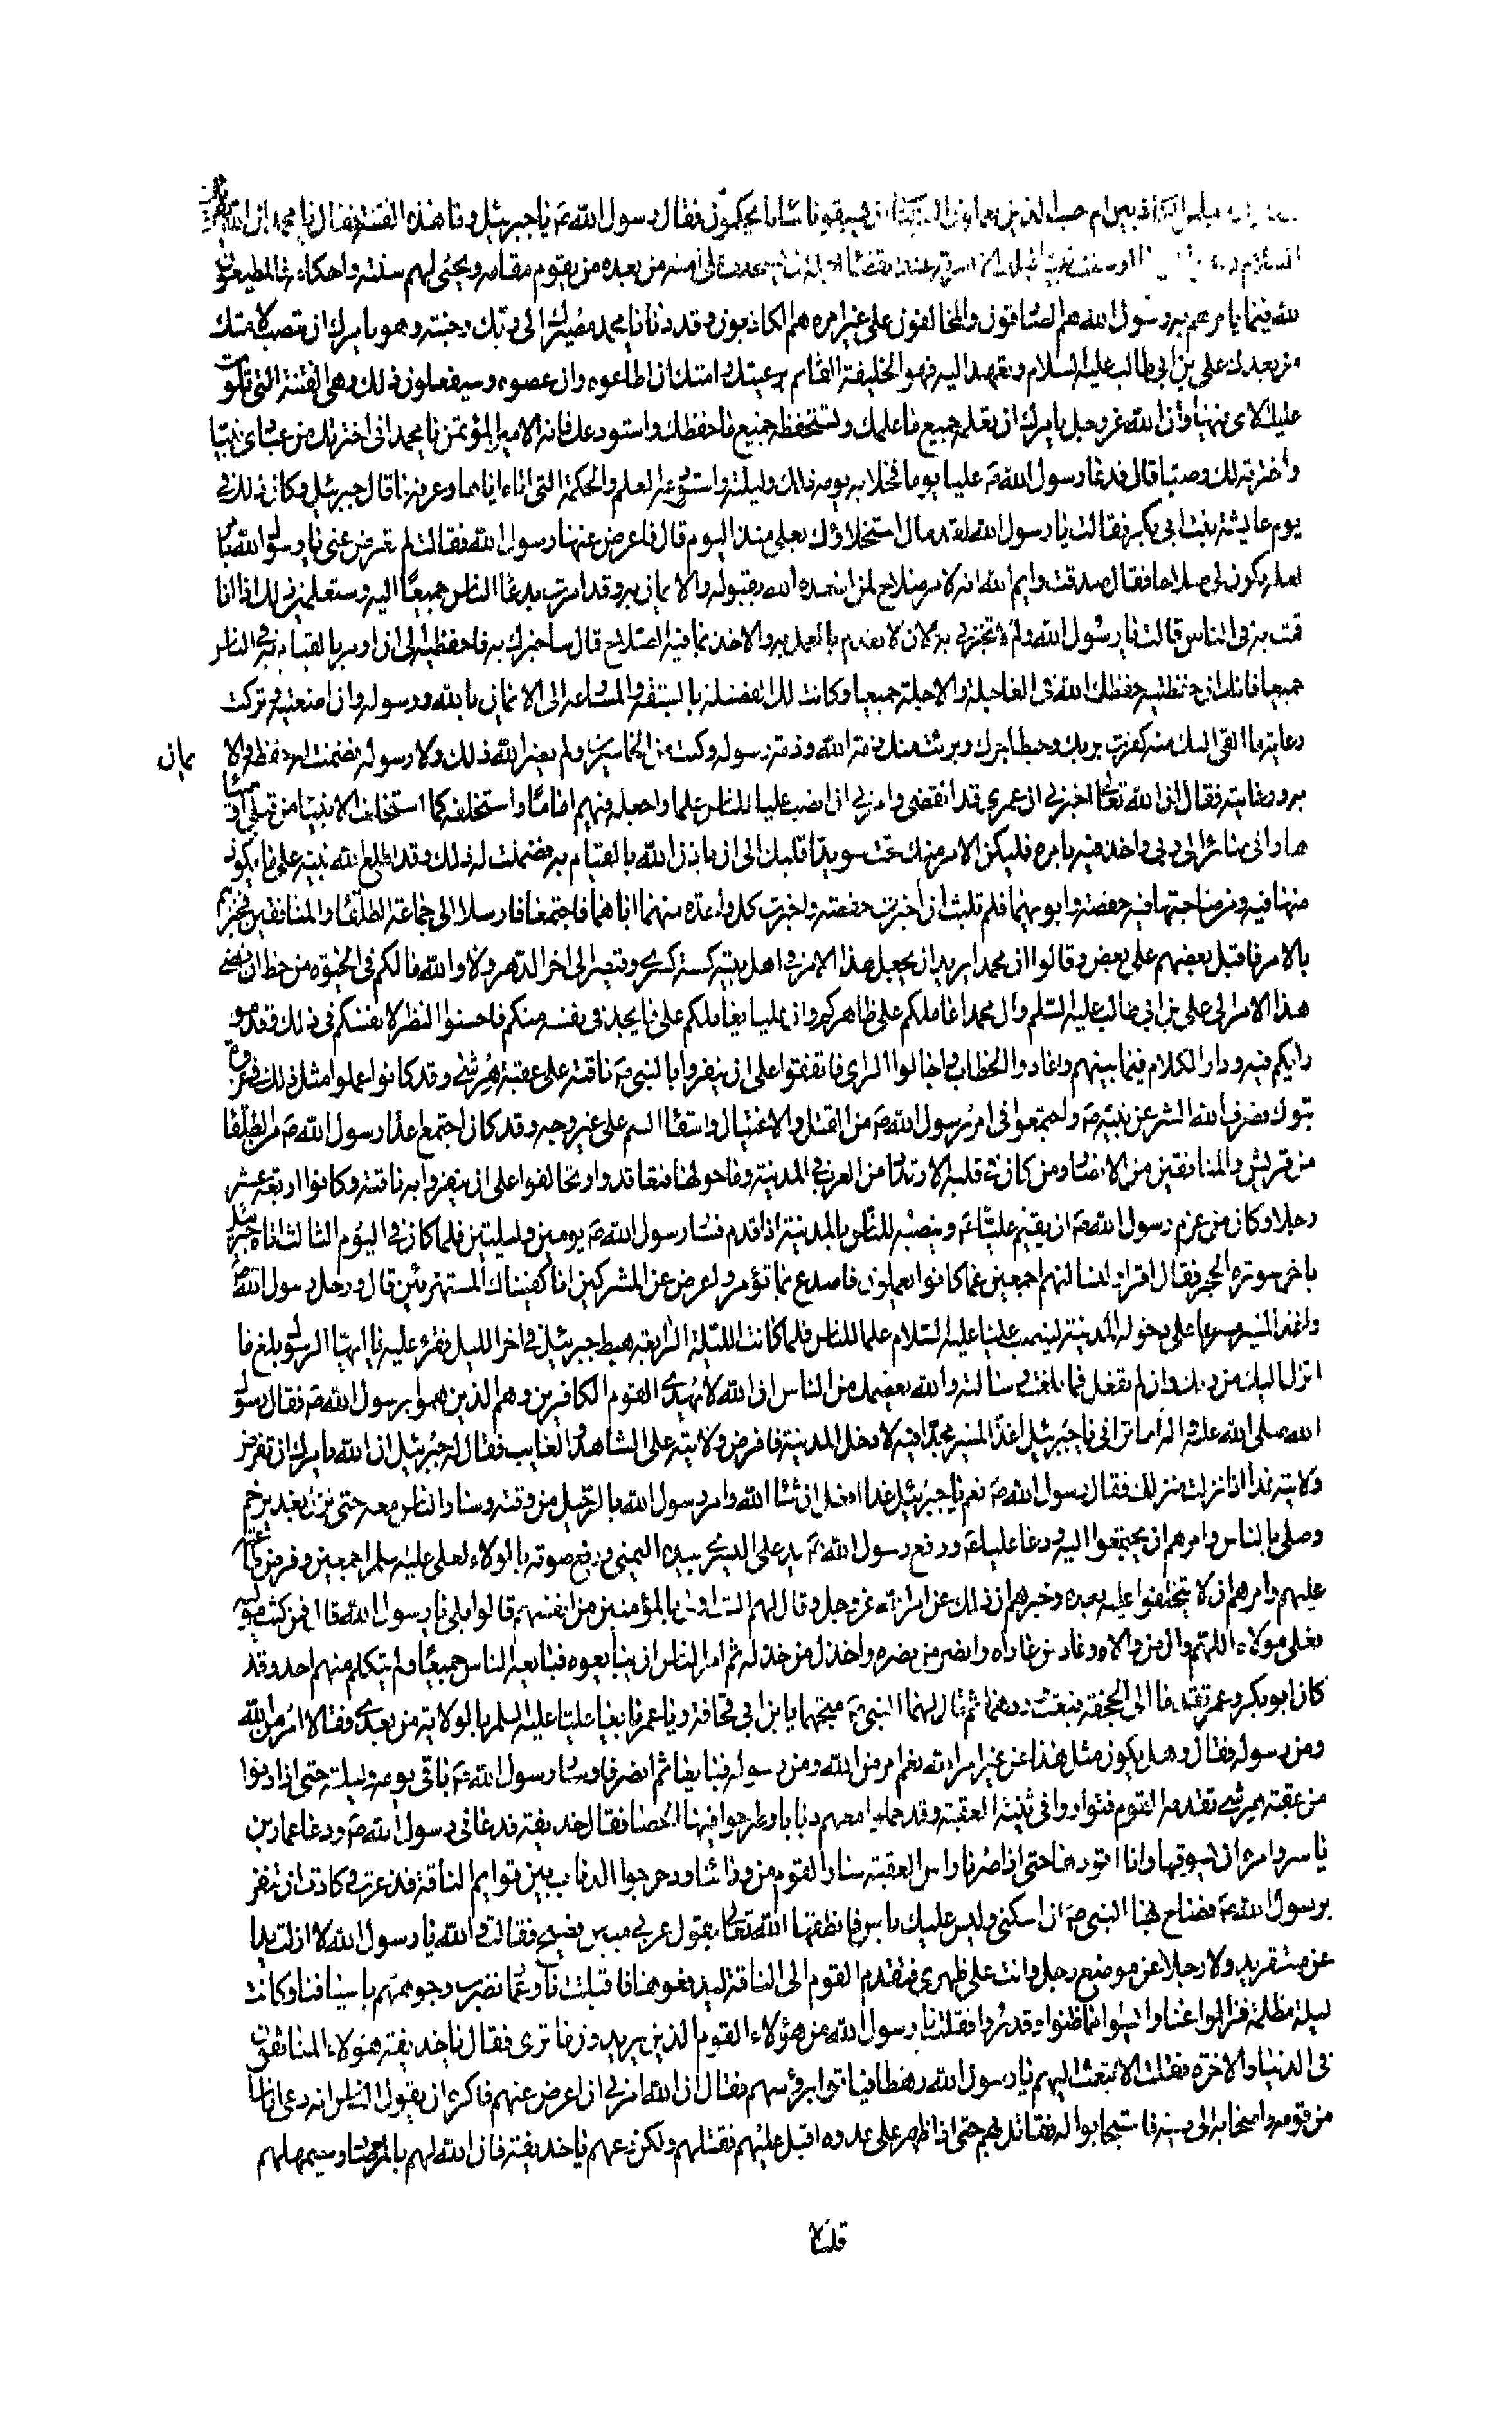 الكاذبين ام حسب الذين يعملون السيئات ان يسبقونا ساء ما يحكمون فقال رسول الله ص يا جبرئيل وما هذه الفتنة فقال يا محمد ان الله
من بعده من يقوم مقامه ويحيى لهم سنته واحكامه فالمطيعون
لله فيما يامرهم به رسول الله هم الصادقون والمخالفون على غير امره هم الكاذبون وقد دنا يا محمد مصيرك الى ربك وجنته وهو يامرك ان تنصب لامتك
من بعدك على بن ابي طالب عليه السلام وتعهد اليه فهو الخليفة القائم برعيتك وامتك ان اطاعوه وان عصوه وسيفعلون ذلك وهي الفتنة التي تلوت
عليك الاى فيها وان الله عز وجل يامرك ان تعلمه جميع ما علمك وتستحفظه جميع ما حفظك واستودعك فانه الامير المؤتمن يا محمد اني اخترتك من عبادى نبيا
واخترته لك وصيا قال فدعا رسول الله ص عليا يوما فخلا به يومه ذلك وليلته واستودعه العلم والحكمة التي اتاه اياها وعرفه ما قال جبرئيل وكان ذلك في
يوم عايشة بنت ابي بكر فقالت يا رسول الله لقد طال استخلاؤك بعلي منذ اليوم قال فاعرض عنها رسول الله فقالت لم تعرض عني يا رسول الله بامر
لعله يكون لي صلاحا فقال صدقت وايم الله انه لامر صلاح لمن اسعده الله بقبوله والايمان به وقد امرت بدعاء الناس جميعا اليه وستعلمين ذلك اذا انا
قمت به في الناس قالت يا رسول الله ولم لا تخبرني به الان لاتقدم بالعمل به والاخذ بما فيه الصلاح قال ساخبرك به فاحفظيه الى ان اومر بالقيام به في الناس
جميعا فانك ان حفظتيه حفظك الله في العاجلة والاجلة جميعا وكانت لك الفضيلة بالسبقة والمسارعة الى الايمان بالله ورسوله وان اضعتيه وتركت
رعاية ما القى اليك منه كفرت بربك وحبط اجرك وبرئت منك ذمة الله وذمة رسوله وكنت من الخاسرين ولم يضر الله ذلك ولا رسوله فضمنت له حفظه والا
يمان
به ورعايته فقال ان الله تعالى اخبرني ان عمري قد انقضى وامرني ان انصب عليا للناس علما واجعله فيهم اماما واستخلفه كما استخلف الانبياء من قبلي اوصيائها
وانى صائر الى ربي واخذ فيه بامره فليكن الامر منك تحت سويداء قلبك الى ان ياذن الله بالقيام به فضمنت له ذلك وقد اطلع الله نبيه على ما يكون
منها فيه ومن صاحبتها فيه حفصة وابويهما فلم تلبث ان اخبرت حفصة واخبرت كل واحدة منهما اباهما فاجتمعا فارسلا الى جماعة الطلقاء والمنافقين فخبراهم
بالامر فاقبل بعضهم على بعض وقالوا ان محمدا يريد ان يجعل هذا الامر في اهل بيته كسنة كسرى وقيصر الى اخر الدهر ولا والله ما لكم في الحيوة من حظ ان افضى
هذا الامر الى علي بن ابي طالب عليه السلام وان محمدا عاملكم على ظاهركم وان عليا يعاملكم على ما يجد في نفسه منكم فاحسنوا النظر لانفسكم في ذلك وقدموا
رايكم فيه ودار الكلام فيما بينهم واعادوا الخطاب واجالوا الراى فاتفقوا على ان ينفروا بالنبي ص ناقته على عقبة هرشي وقد كانوا عملوا مثل ذلك في غزوة
تبوك فصرف الله الشر عن نبيه ص واجتمعوا في امر رسول الله ص من القتل والاغتيال واسقاء السم على غير وجه وقد كان اجتمع اعداء رسول الله ص من الطلقاء
من قريش والمنافقين من الانصار ومن كان في قلبه الارتداد من العرب في المدينة وما حولها فتعاقدوا وتحالفوا على ان ينفروا به ناقته وكانوا اربعة عشر
رجلا وكان من عزم رسول الله ص ان يقيم عليا ع وينصبه للناس بالمدينة اذا قدم فسار رسول الله ص يومين وليلتين فلما كان في اليوم الثالث اتاه جبرئيل
باخر سورة الحجر فقال اقرا لنسالنهم اجمعين عما كانوا يعملون فاصدع بما تؤمر واعرض عن المشركين انا كفيناك المستهزئين قال ورحل رسول الله ص
واغذ السير مسرعا على دخوله المدينة لينصب عليا عليه السلام علما للناس فلما كانت الليلة الرابعة هبط جبرئيل في اخر الليل فقرء عليه يا ايها الرسول بلغ ما
انزل اليك من ربك وان لم تفعل فما بلغت رسالته والله يعصمك من الناس ان الله لا يهدى القوم الكافرين وهم الذين هموا برسول الله ص فقال رسول
الله صلى الله عليه واله اما تراني يا جبرئيل اغذ السير مجدا فيه لادخل المدينة فافرض ولايته على الشاهد والغايب فقال له جبرئيل ان الله يامرك ان تفرض
ولايته غدا اذا نزلت منزلك فقال رسول الله ص نعم يا جبرئيل غدا افعل ان شاء الله وامر رسول الله بالرحيل من وقته وسار الناس معه حتى نزل بغدير خم
وصلى بالناس وامرهم ان يجتمعوا اليه ودعا عليا ع ورفع رسول الله ص يد على اليسرى بيده اليمنى ورفع صوته بالولاء لعلى عليه السلم اجمعين وفرض طاعته
عليهم وامرهم ان لا يتخلفوا عليه بعده وخبرهم ان ذلك عن امر الله عز وجل وقال لهم الست اولى بالمؤمنين من انفسهم قالوا بلى يا رسول الله قال فمن كنت مولاه
فعلي مولاه اللهم وال من والاه وعاد من عاداه وانصر من نصره واخذل من خذله ثم امر الناس ان يبايعوه فبايعه الناس جميعا ولم يتكلم منهم احد وقد
كان ابو بكر وعمر تقدما الى الجحفة فبعث وردهما ثم قال لهما النبي ص متجهما يا بن ابي قحافة ويا عمر بايعا عليا عليه السلم بالولاية من بعدى فقالا امر من الله
ومن رسوله فقال وهل يكون مثل هذا عن غير امر الله نعم امر من الله ومن رسوله فبايعا ثم انصرفا وسار رسول الله ص باقى يومه وليلته حتى اذا دنوا
من عقبة هرشى تقدمه القوم فتواروا في ثنية العقبة وقد حملوا معهم دبابا وطرحوا فيها الحصا فقال حذيفة فدعاني رسول الله ص ودعا عمار بن
ياسر وامره ان يسوقها وانا اقودها حتى اذا صرنا راس العقبة سار القوم من ورائنا ودحرجوا الدباب بين قوايم الناقة فذعرت وكادت ان تنفر
برسول الله ص فصاح بها النبي ص ان اسكني وليس عليك باس فانطقها الله تعالى بقول عربي مبين فصيح فقالت والله يا رسول الله لا ازلت يدا
عن مستقر يد ولا رجلا عن موضع رجل وانت على ظهري فتقدم القوم الى الناقة ليدفعوها فاقبلت انا وعمار نضرب وجوههم باسيافنا وكانت
ليلة مظلمة فزالوا عنا وايسوا مما ظنوا وقدروا فقلت يا رسول الله من هؤلاء القوم الذين يريدون ما ترى فقال يا حذيفة هؤلاء المنافقون
في الدنيا والاخرة فقلت الا تبعث اليهم يا رسول الله رهطا فياتوا برؤسهم فقال ان الله امرني ان اعرض عنهم فاكره ان يقول الناس انه دعى اناسا
من قومه واصحابه الى دينه فاستجابوا له فقاتل بهم حتى اذا ظهر على عدوه اقبل عليهم فقتلهم ولكن دعهم يا حذيفة فان الله لهم بالمرصاد وسيمهلهم
قليلا